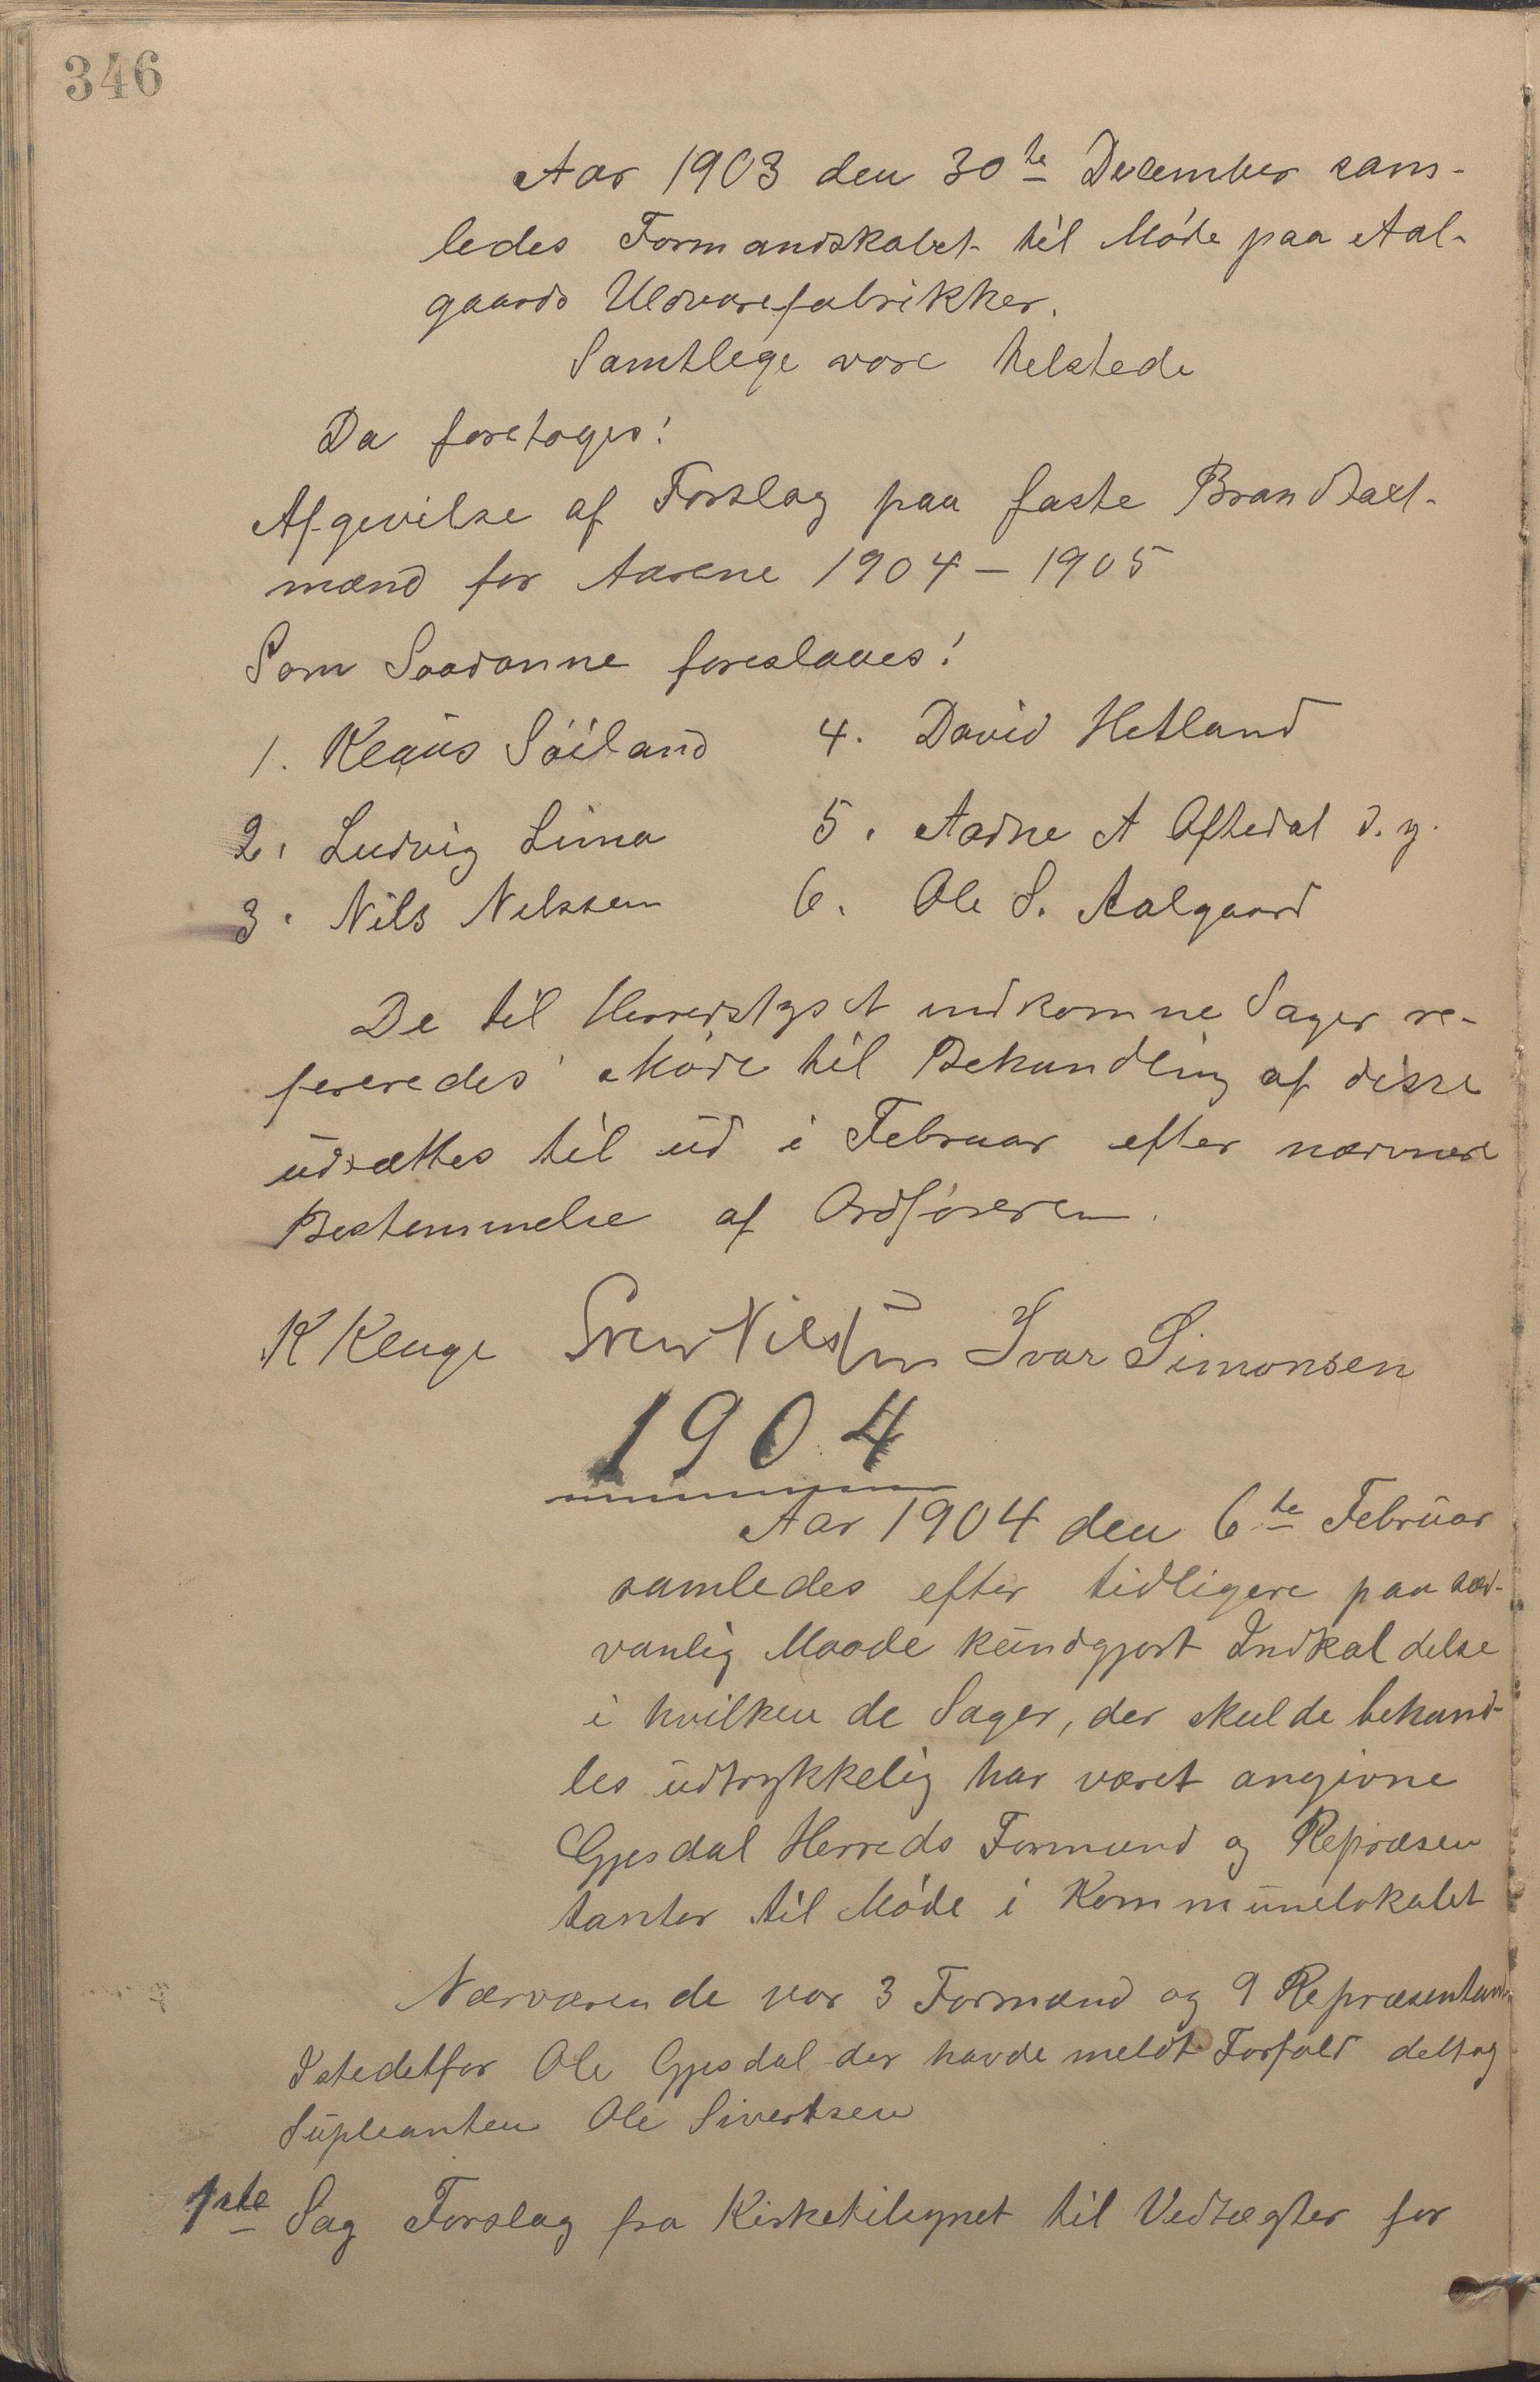 346
Aar 1903 den 30te December sam-
ledes Formandskabet til Møde paa Aal-
gaards Uldvarefabrikker.
Samtlege vare telstede
Da foretoges:
Afgivelse af Forslag paa faste Brandtaxt-
mænd for Aarene 1904 – 1905
Som Saadanne foreslaaes:
1. Klaus Söiland 4. David Hetland
2. Ludvig Lima 5. Aadne A Oftedal d. y.
3. Nils Nelssen 6. Ole S. Aalgaard
De til Herredstyret indkomne Sager re-
fereredes Møde til Behandling af disse
udsættes til ud i Februar efter nærmere
Bestemmelse af Ordføreren.
K Kluge Sven Nilssen Ivar Simonsen
1904
Aar 1904 den 6te Februar
samledes efter tidligere paa sæd-
vanlig Maade kundgjort Indkaldelse
i hvilken de Sager, der skulde behand-
les udtrykkelig har været angivne
Gjesdal Herreds Formænd og Repræsen
tanter til Møde i Kommunelokalet
Nærværende var 3 Formænd og 9 Repræsentant.
Istedetfor Ole Gjesdal der havde meldt Forfald deltog
Supleanten Ole Sivertsen
1ste Sag Forslag fra Kirketilsynet til Vedtægter for